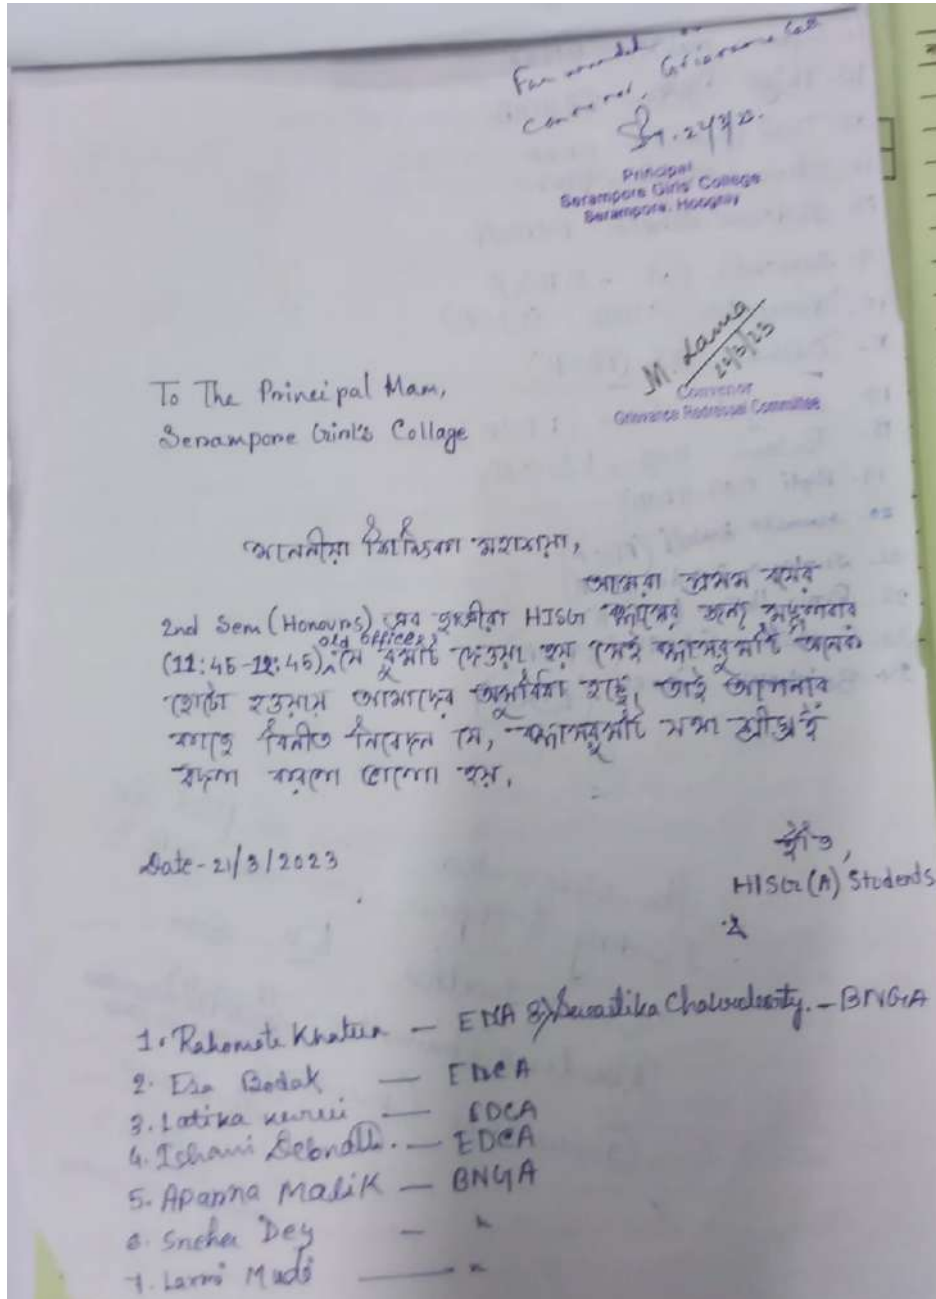 Forwarded to
Convenor, Grievance Cell
Principal
Serampore Girls' College
Serampore, Hooghly
M. Lama
22/3/23
Convenor
Grievance Redressal Committee
To The Principal Mam,
Serampore Girl's Collage
মাননীয়া শিক্ষিকা মহাশয়া,
আমরা প্রথম বর্ষের
2nd Sem (Honours) এর ছাত্রীরা HISG ক্লাসের জন্য মঙ্গলবার
(11:45-12:45) old office এ যে রুমটি দেওয়া হয় সেই ক্লাসরুমটি অনেক
ছোটো হওয়ায় আমাদের অসুবিধা হচ্ছে, তাই আপনার
কাছে বিনীত নিবেদন যে, ক্লাসরুমটি যথা শীঘ্রই
বদল করলে ভালো হয়.
Date - 21/3/2023
ইতি,
HISG (A) Students
1. Rahomate Khatun — 8) Swastika Chakraborty. - BNGA
2. Esa Bodak — EDCA
3. Latika — EDCA
4. Ishani Debnath. — EDCA
5. Aparna Malik — BNGA
6. Sneha Dey — "
7. Laxmi Mudi — "